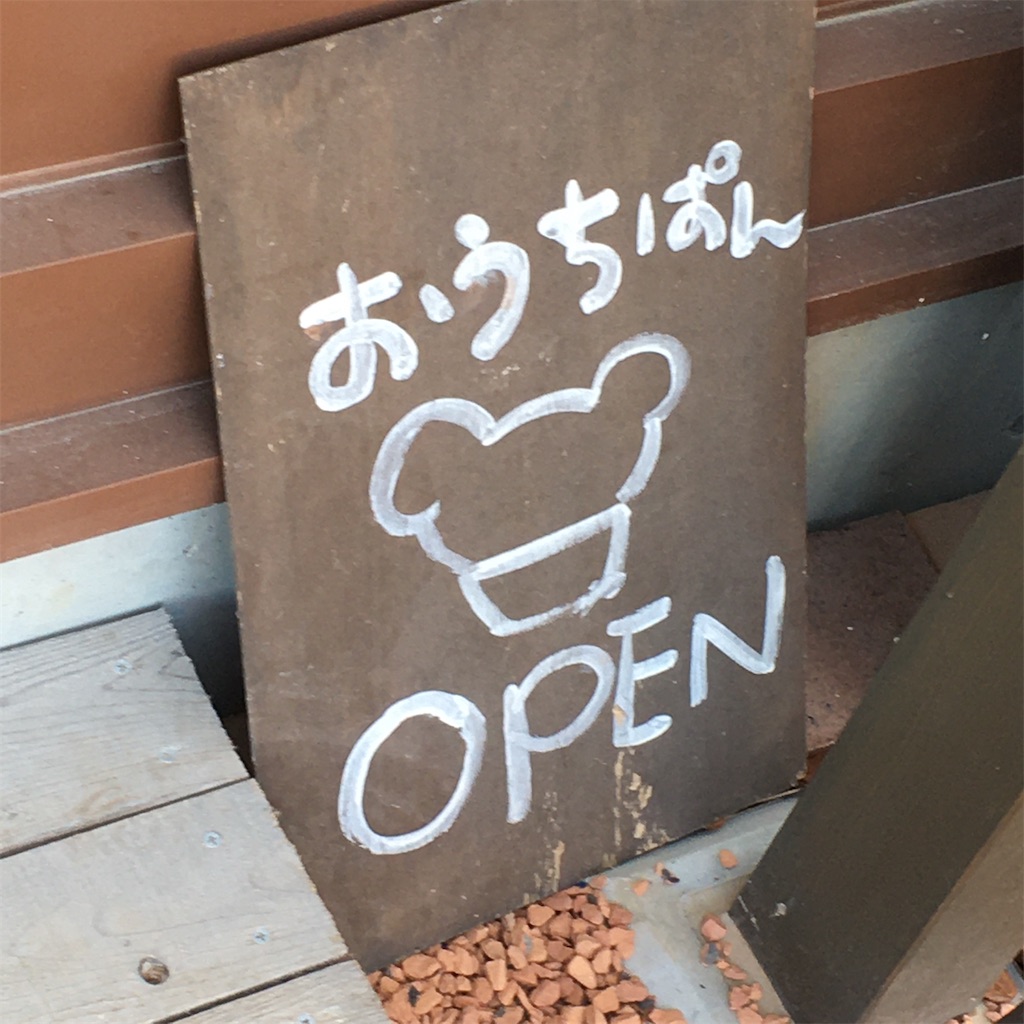 おうちぱん
OPEN